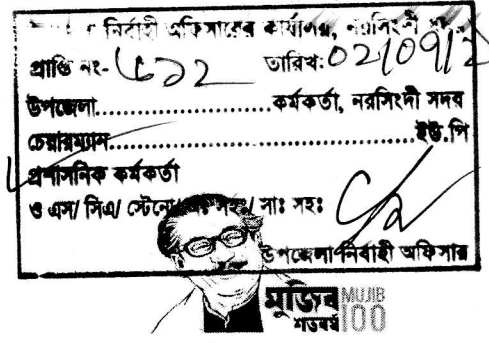 নির্বাহী অফিসারের কার্যালয়, নরসিংদী
প্রাপ্তি নং- তারিখ: 02/09/2
উপজেলা.....................কর্মকর্তা, নরসিংদী সদর
চেয়ারম্যান.......................................ইউ.পি
প্রশাসনিক কর্মকর্তা
ও এস/ সিএ/ স্টেনো/ সাঃ সহঃ
উপজেলা নির্বাহী অফিসার
মুজিব MUJIB
শতবর্ষ 100